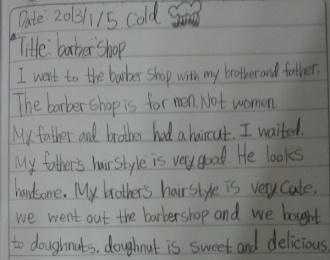 Date: 2013/1/5 Cold
Title: barber shop
I went to the barber shop with my brother and father.
The barber shop is for men. Not women.
My father and brother had a haircut. I waited.
My father's hair style is very good. He looks
handsome. My brother's hairstyle is very cute.
we went out the barbershop and we bought
to doughnuts. doughnut is sweet and delicious.